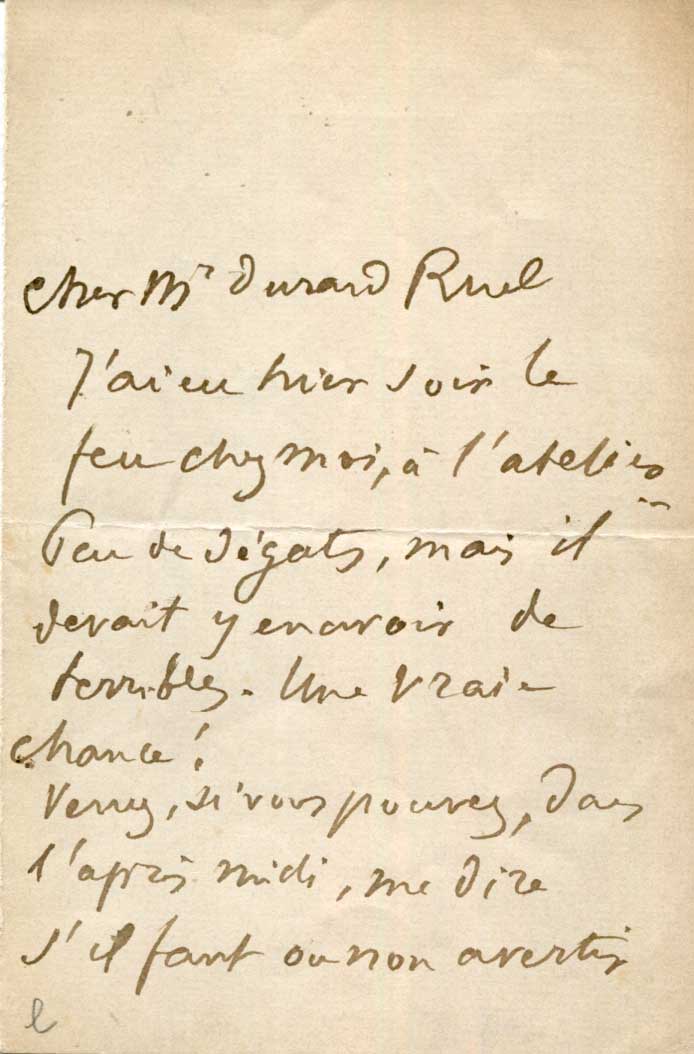 Cher Mr Durand Ruel
J'ai eu hier soir le
feu chez moi, à l'atelier
Peu de dégats, mais il
devait y en avoir de
terribles. Une vraie
chance !
Venez, si vous pouvez, dans
l'après midi, me dire
s'il faut ou non avertir
l